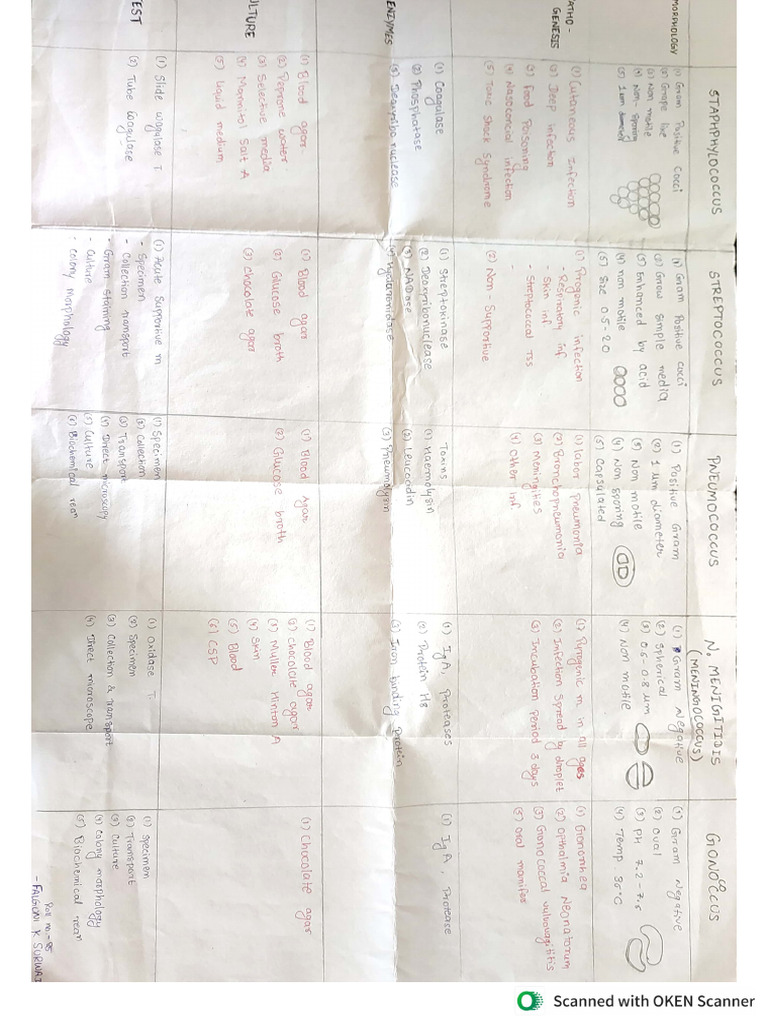 STAPHPHYLOCOCCUS
STREPTOCOCCUS
PNEUMOCOCCUS
N. MENIGITIDIS
(MENINGIOCOCCUS)
GONOCOCCUS
MORPHOLOGY
(1) Gram Positive Cocci
(2) Grape like
(3) Non motile
(4) Non-sporing
(5) 1 um diameter
(1) Gram Positive cocci
(2) Grow simple media
(3) Enhanced by acid
(4) non motile
(5) Size 0.5-2.0
(1) Positive Gram
(2) 1 um diameter
(3) Non motile
(4) Non sporing
(5) capsulated
(1) Gram Negative
(2) Spherical
(3) 0.6-0.8 um
(4) Non motile
(1) Gram Negative
(2) oval
(3) PH 7.2-7.5
(4) Temp. 35°C
PATHO-
GENESIS
(1) Cutaneous Infection
(2) Deep infection
(3) Food Poisoning
(4) Nasocorcial infection
(5) Toxic Shock Syndrome
(1) Piogenic infection
- Respiratory inf
- Skin inf
- Streptococcal TSS
(2) Non-Supportive
(1) labor Pneumonia
(2) Bronchopneumonia
(3) Meningities
(4) Other inf
(1) Pyogenic m. in all ages
(2) Infection Spread by droplet
(3) Incubation Period 3 days
(1) Gronorrhea
(2) opthalmia Neonatorum
(3) Gionococcal vulvovagititis
(5) oral manifes
ENZYMES
(1) Coagulase
(2) Phosphatase
(3) Deoxyribonuclease
(1) Streptokinase
(2) Deoxyribonuclease
(3) NADase
(4) Hyaluronidase
Toxins
(1) Haemolysin
(2) Leucocidin
(3) Pneumolysin
(1) IgA, Proteases
(2) Protein H8
(3) Iron binding Protein
(1) IgA, Protease
ULTURE
(1) Blood agar
(2) Peptone water
(3) Selective media
(4) Mannitol Salt A
(5) liquid medium
(1) Blood agar
(2) Glucose broth
(3) Chocolate agar
(1) Blood Agar
(2) Glucose broth
(1) Blood agar
(2) chocolate agar
(3) Muller Hinton A
(4) Skin
(5) Blood
(6) CSP
(1) Chocolate agar
EST
(1) Slide coagulase T
(2) Tube Coagulase
(1) Acute Supportive m
- Specimen
- Collection transport
- Gram staining
- Culture
- colony morphology
(1) Specimen
(2) Collection
(3) Transport
(4) Direct microscopy
(5) Culture
(6) Biochemical rean
(1) Oxidase T.
(2) Specimen
(3) Collection & transport
(4) Direct microscope
(1) Specimen
(2) Transport
(3) Culture
(4) Colony morphology
(5) Biochemical rean
Roll no-95
- FALGUNI K SURWAI
Scanned with OKEN Scanner